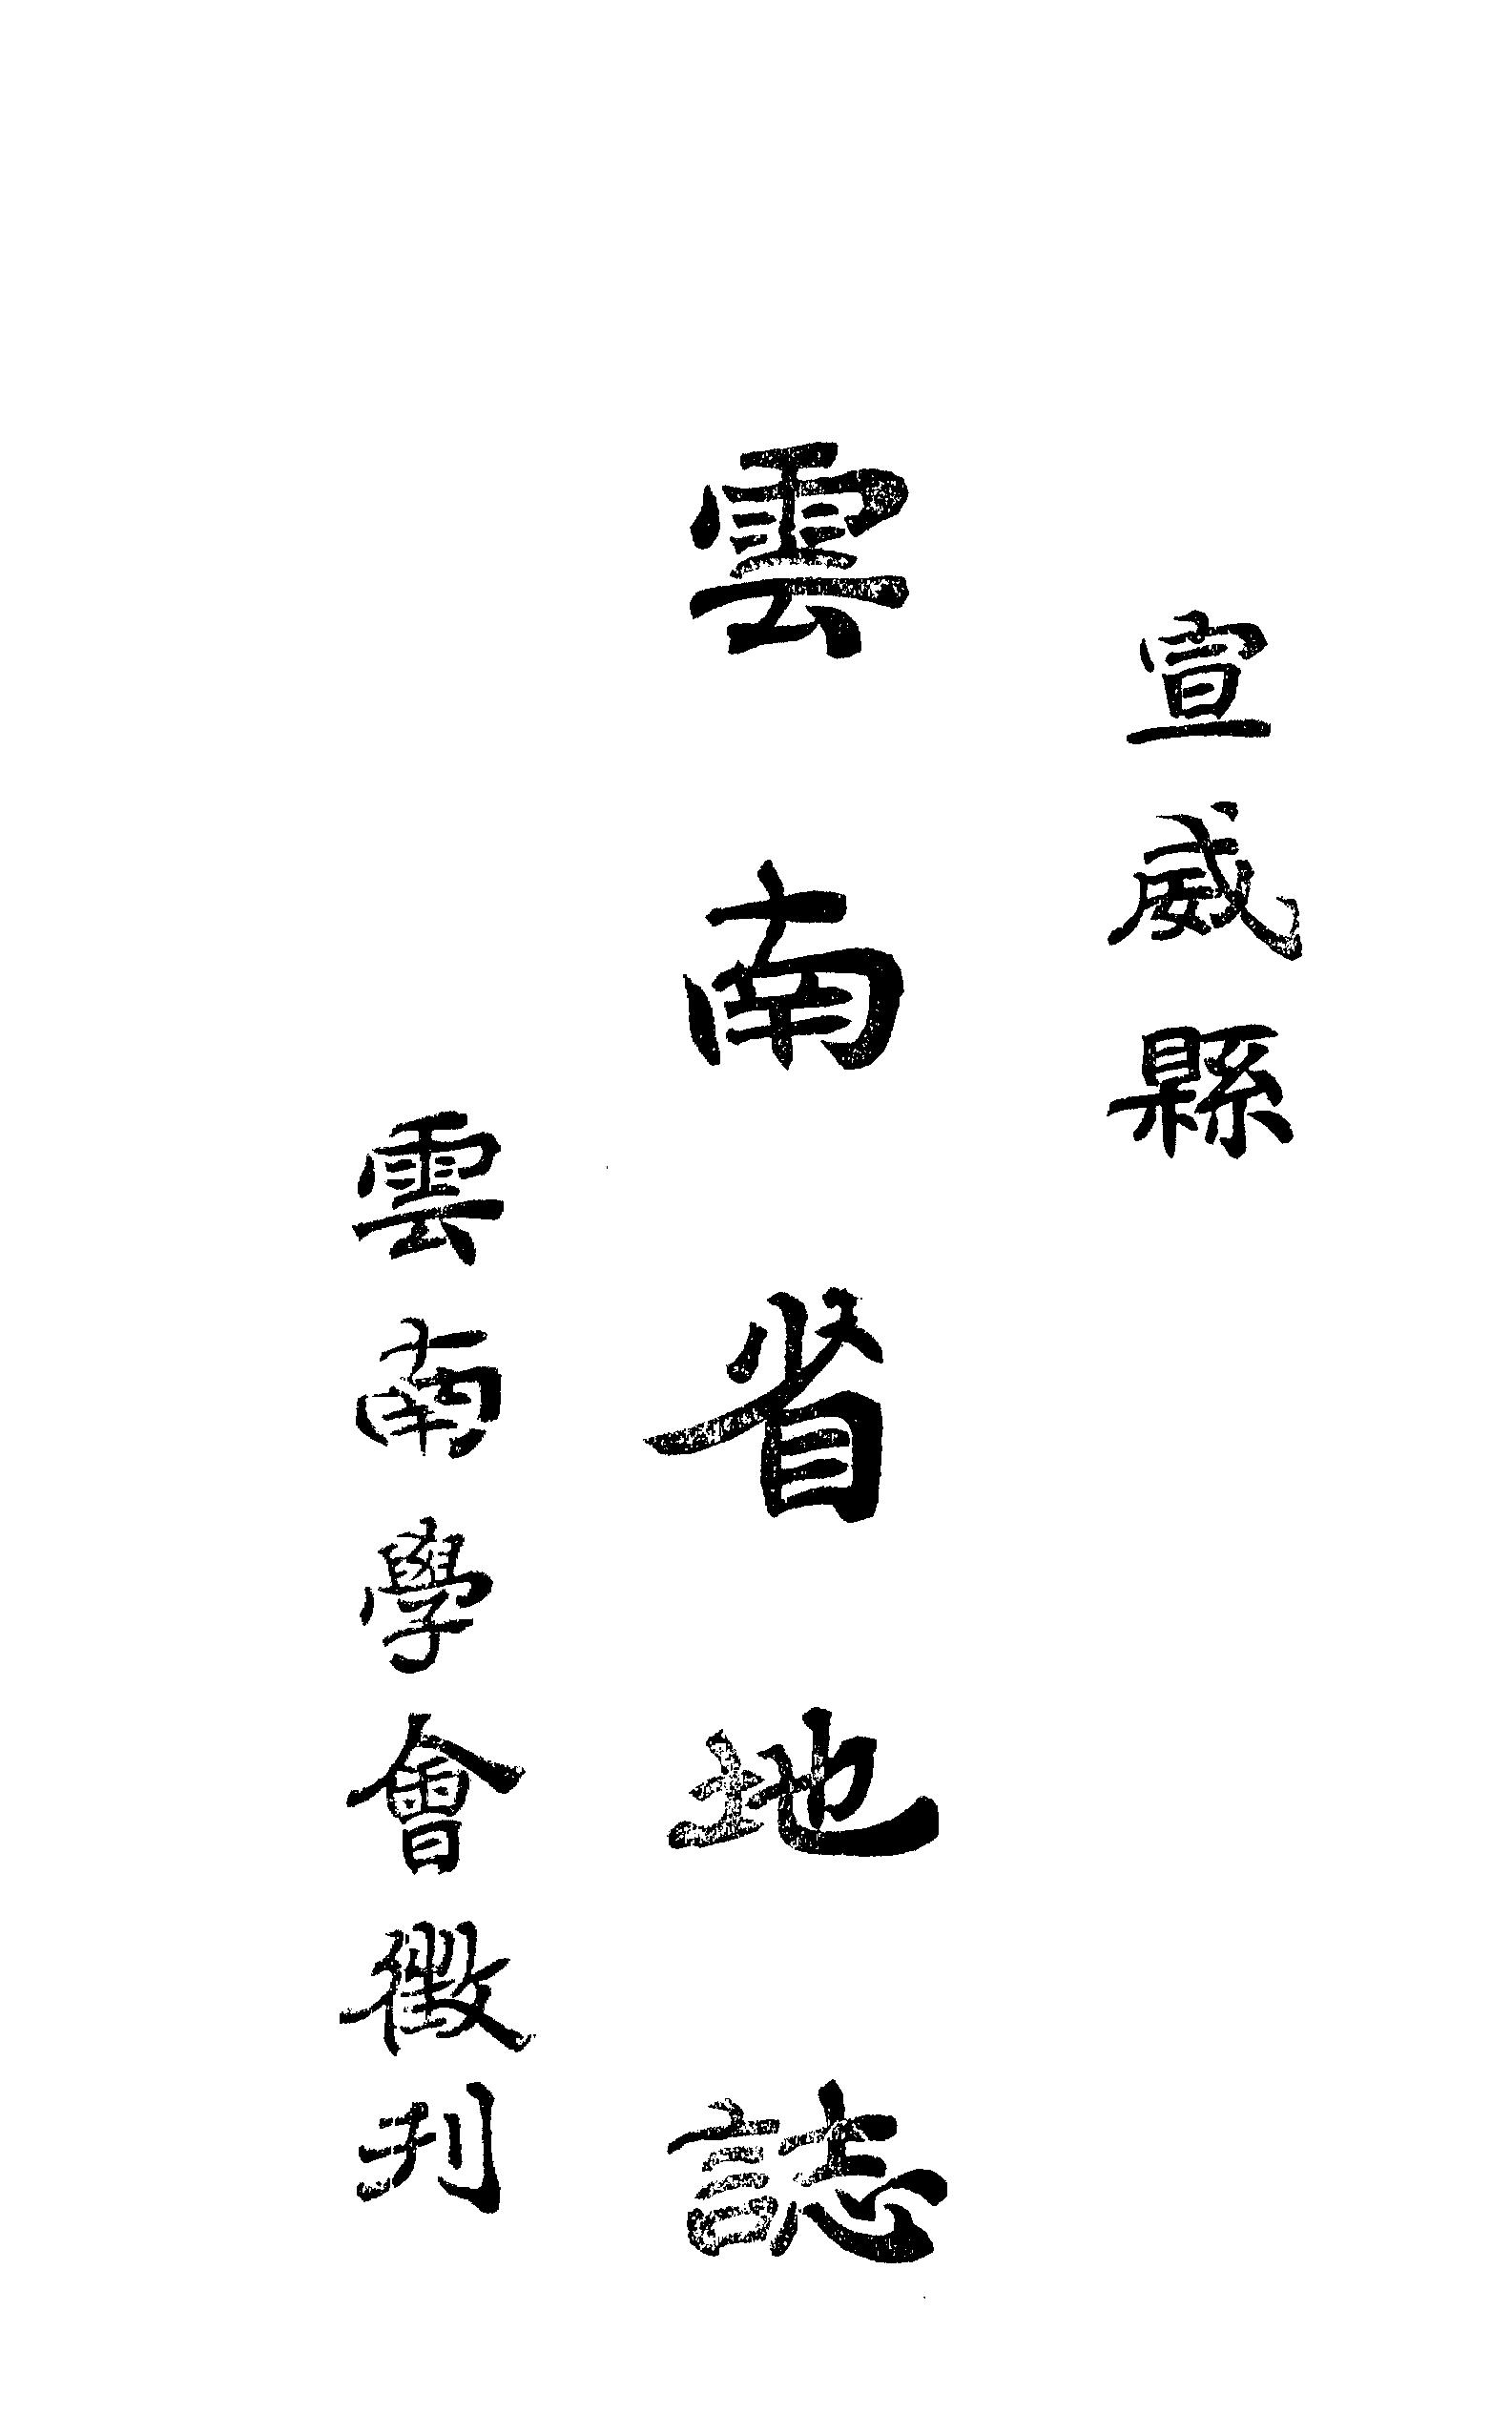 宣威縣
雲南省地誌
雲南學會徵刋